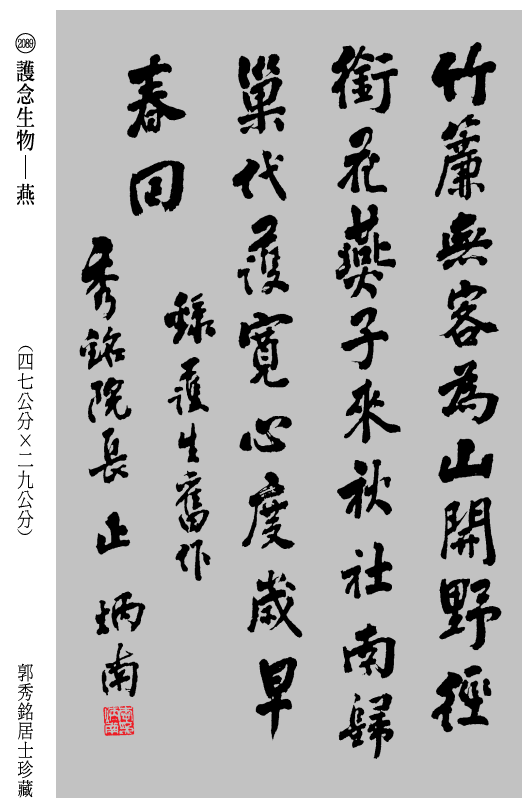 竹簾無客為山開野徑
銜花燕子來秋社南歸
巢代護寬心度歲早
春回
錄護生舊作
秀銘院長正 炳南
2089 護念生物—燕
（四七公分×二九公分）
郭秀銘居士珍藏